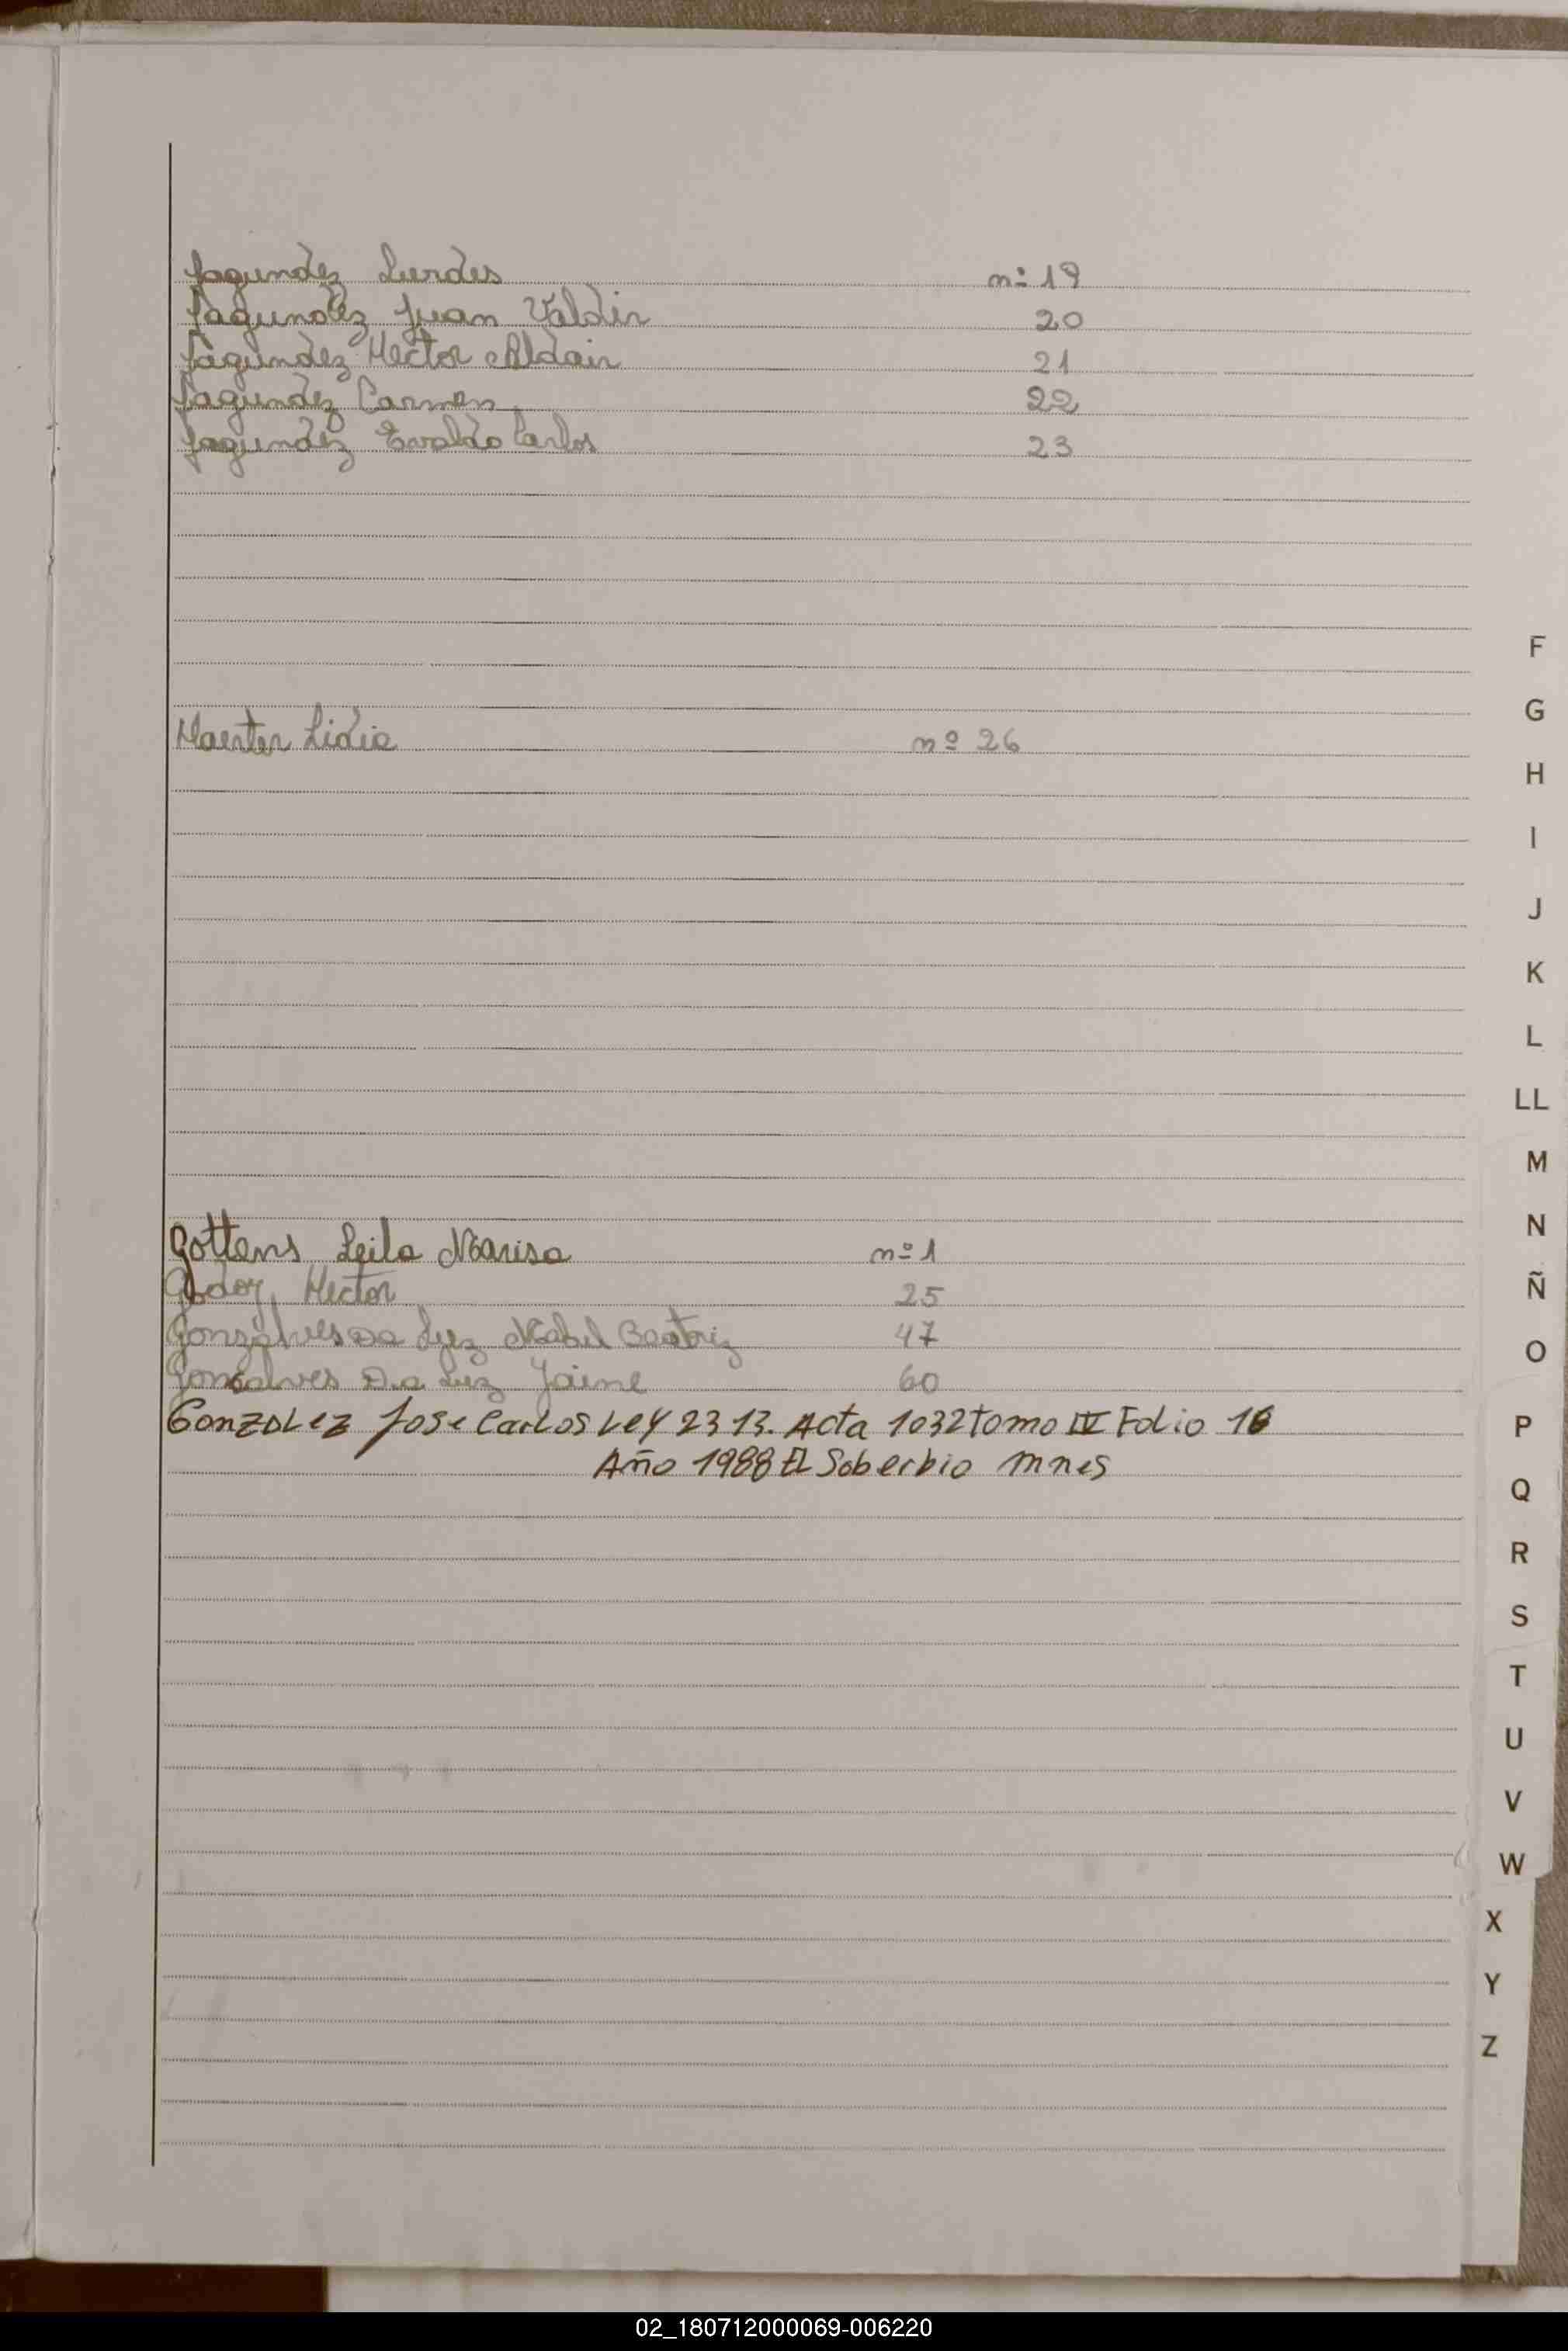 Fagundez Lurdes nº 19
Fagundez Juan Valdir 20
Fagundez Hector Aldair 21
Fagundez Carmen 22
Fagundez Evaldo Carlos 23
Haerter Lidia nº 26
Gottens Leila Marisa nº 1
Godoy, Hector 25
Gonzalves Da Luz Mabel Beatriz 47
Gonsalves Da Luz Jaine 60
Gonzalez Jose Carlos Ley 2313. Acta 1032 tomo IV Folio 16
Año 1988 El Soberbio mnes
F
G
H
I
J
K
L
LL
M
N
Ñ
O
P
Q
R
S
T
U
V
W
X
Y
Z
02_180712000069-006220